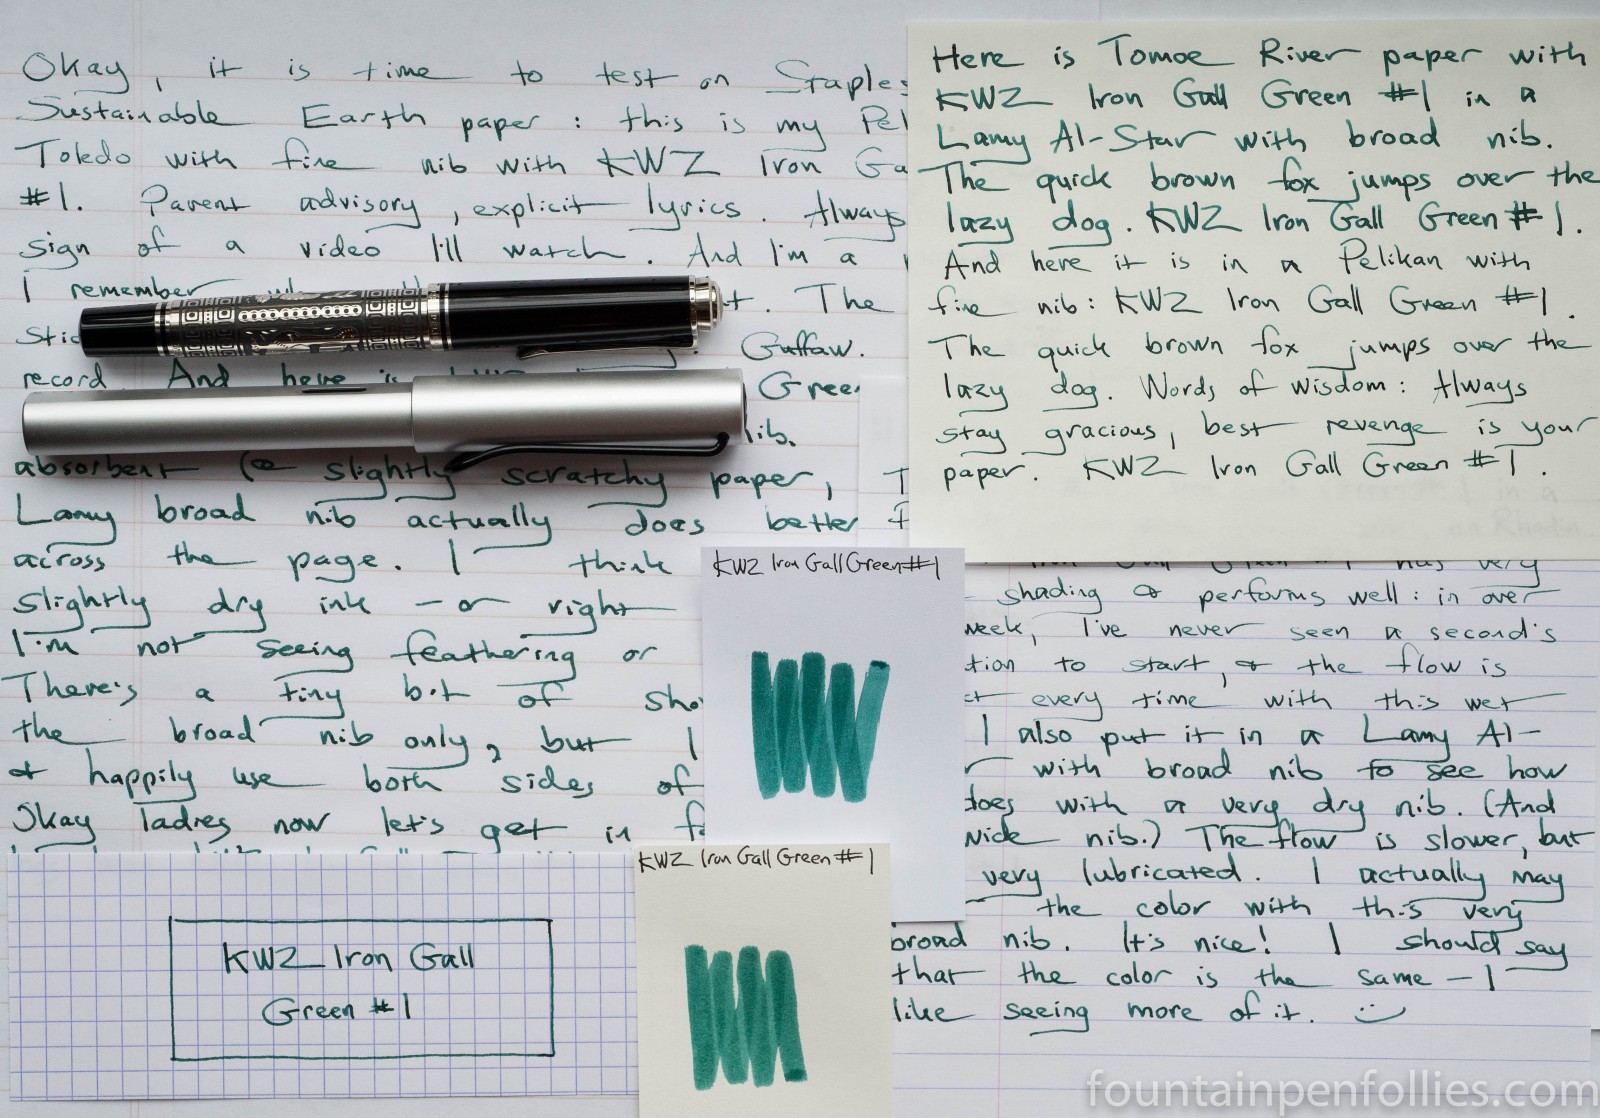 Okay, it is time to test on Staples
Sustainable Earth paper: this is my Pel
Toledo with fine nib with KWZ Iron Ga
#1. Parent advisory, explicit lyrics. Always
sign of a video I'll watch. And I'm a
I remember
t. The
Stic
Guffaw.
record. And here is
Green
nib.
absorbent & slightly scratchy paper, T
Lamy broad nib actually does better f
across the page. I think
slightly dry ink — or right
I'm not seeing feathering or
There's a tiny bit of sho
the broad nib only, but I
& happily use both sides of
Okay ladies now let's get in fo
Here is Tomoe River paper with
KWZ Iron Gall Green #1 in a
Lamy Al-Star with broad nib.
The quick brown fox jumps over the
lazy dog. KWZ Iron Gall Green #1.
And here it is in a Pelikan with
fine nib: KWZ Iron Gall Green #1.
The quick brown fox jumps over the
lazy dog. Words of wisdom: Always
stay gracious, best revenge is your
paper. KWZ Iron Gall Green #1.
KWZ Iron Gall Green #1
KWZ Iron Gall Green #1
KWZ Iron Gall
Green #1
has very
shading & performs well: in over
week, I've never seen a second's
tion to start, & the flow is
ct every time with this wet
I also put it in a Lamy Al-
r with broad nib to see how
does with a very dry nib. (And
wide nib.) The flow is slower, but
very lubricated. I actually may
the color with this very
broad nib. It's nice! I should say
that the color is the same — I
like seeing more of it. :)
fountainpenfollies.com